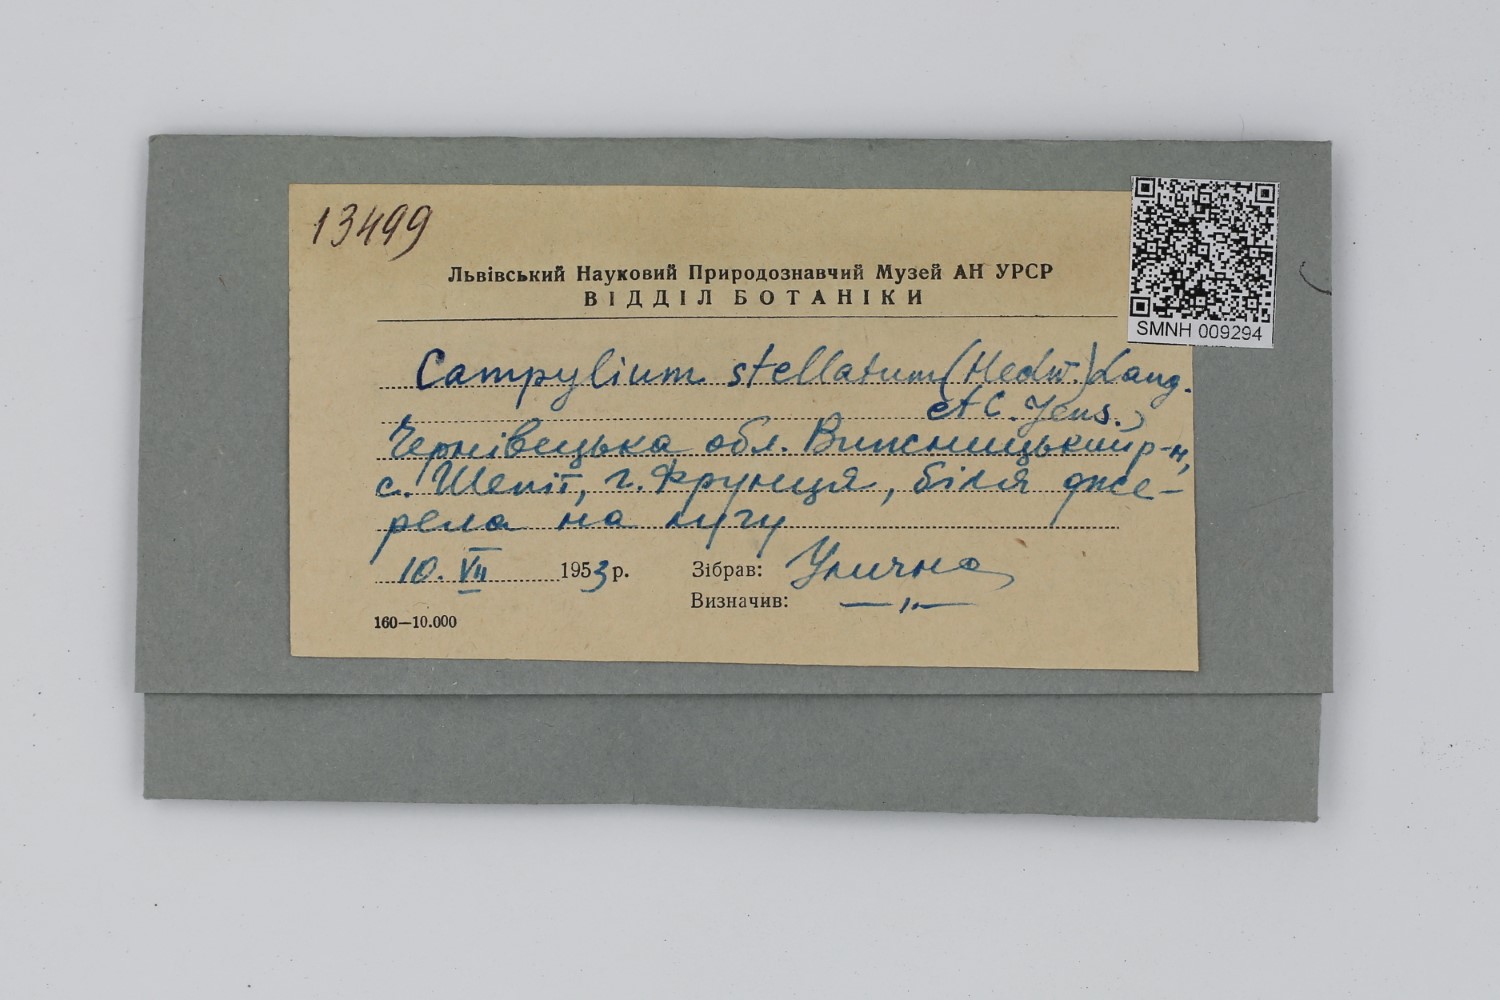 13499
Львівський Науковий Природознавчий Музей АН УРСР
ВІДДІЛ БОТАНІКИ
SMNH 009294
Campylium stellatum (Hedw.) Lang.
et C. Jens.,
Чернівецька обл. Вижницький р-н,
с. Шепіт, г. Фрунця, біля дже-
рела на лугу
10. VII 1953 р. Зібрав: Улична
Визначив: —〃—
160—10.000